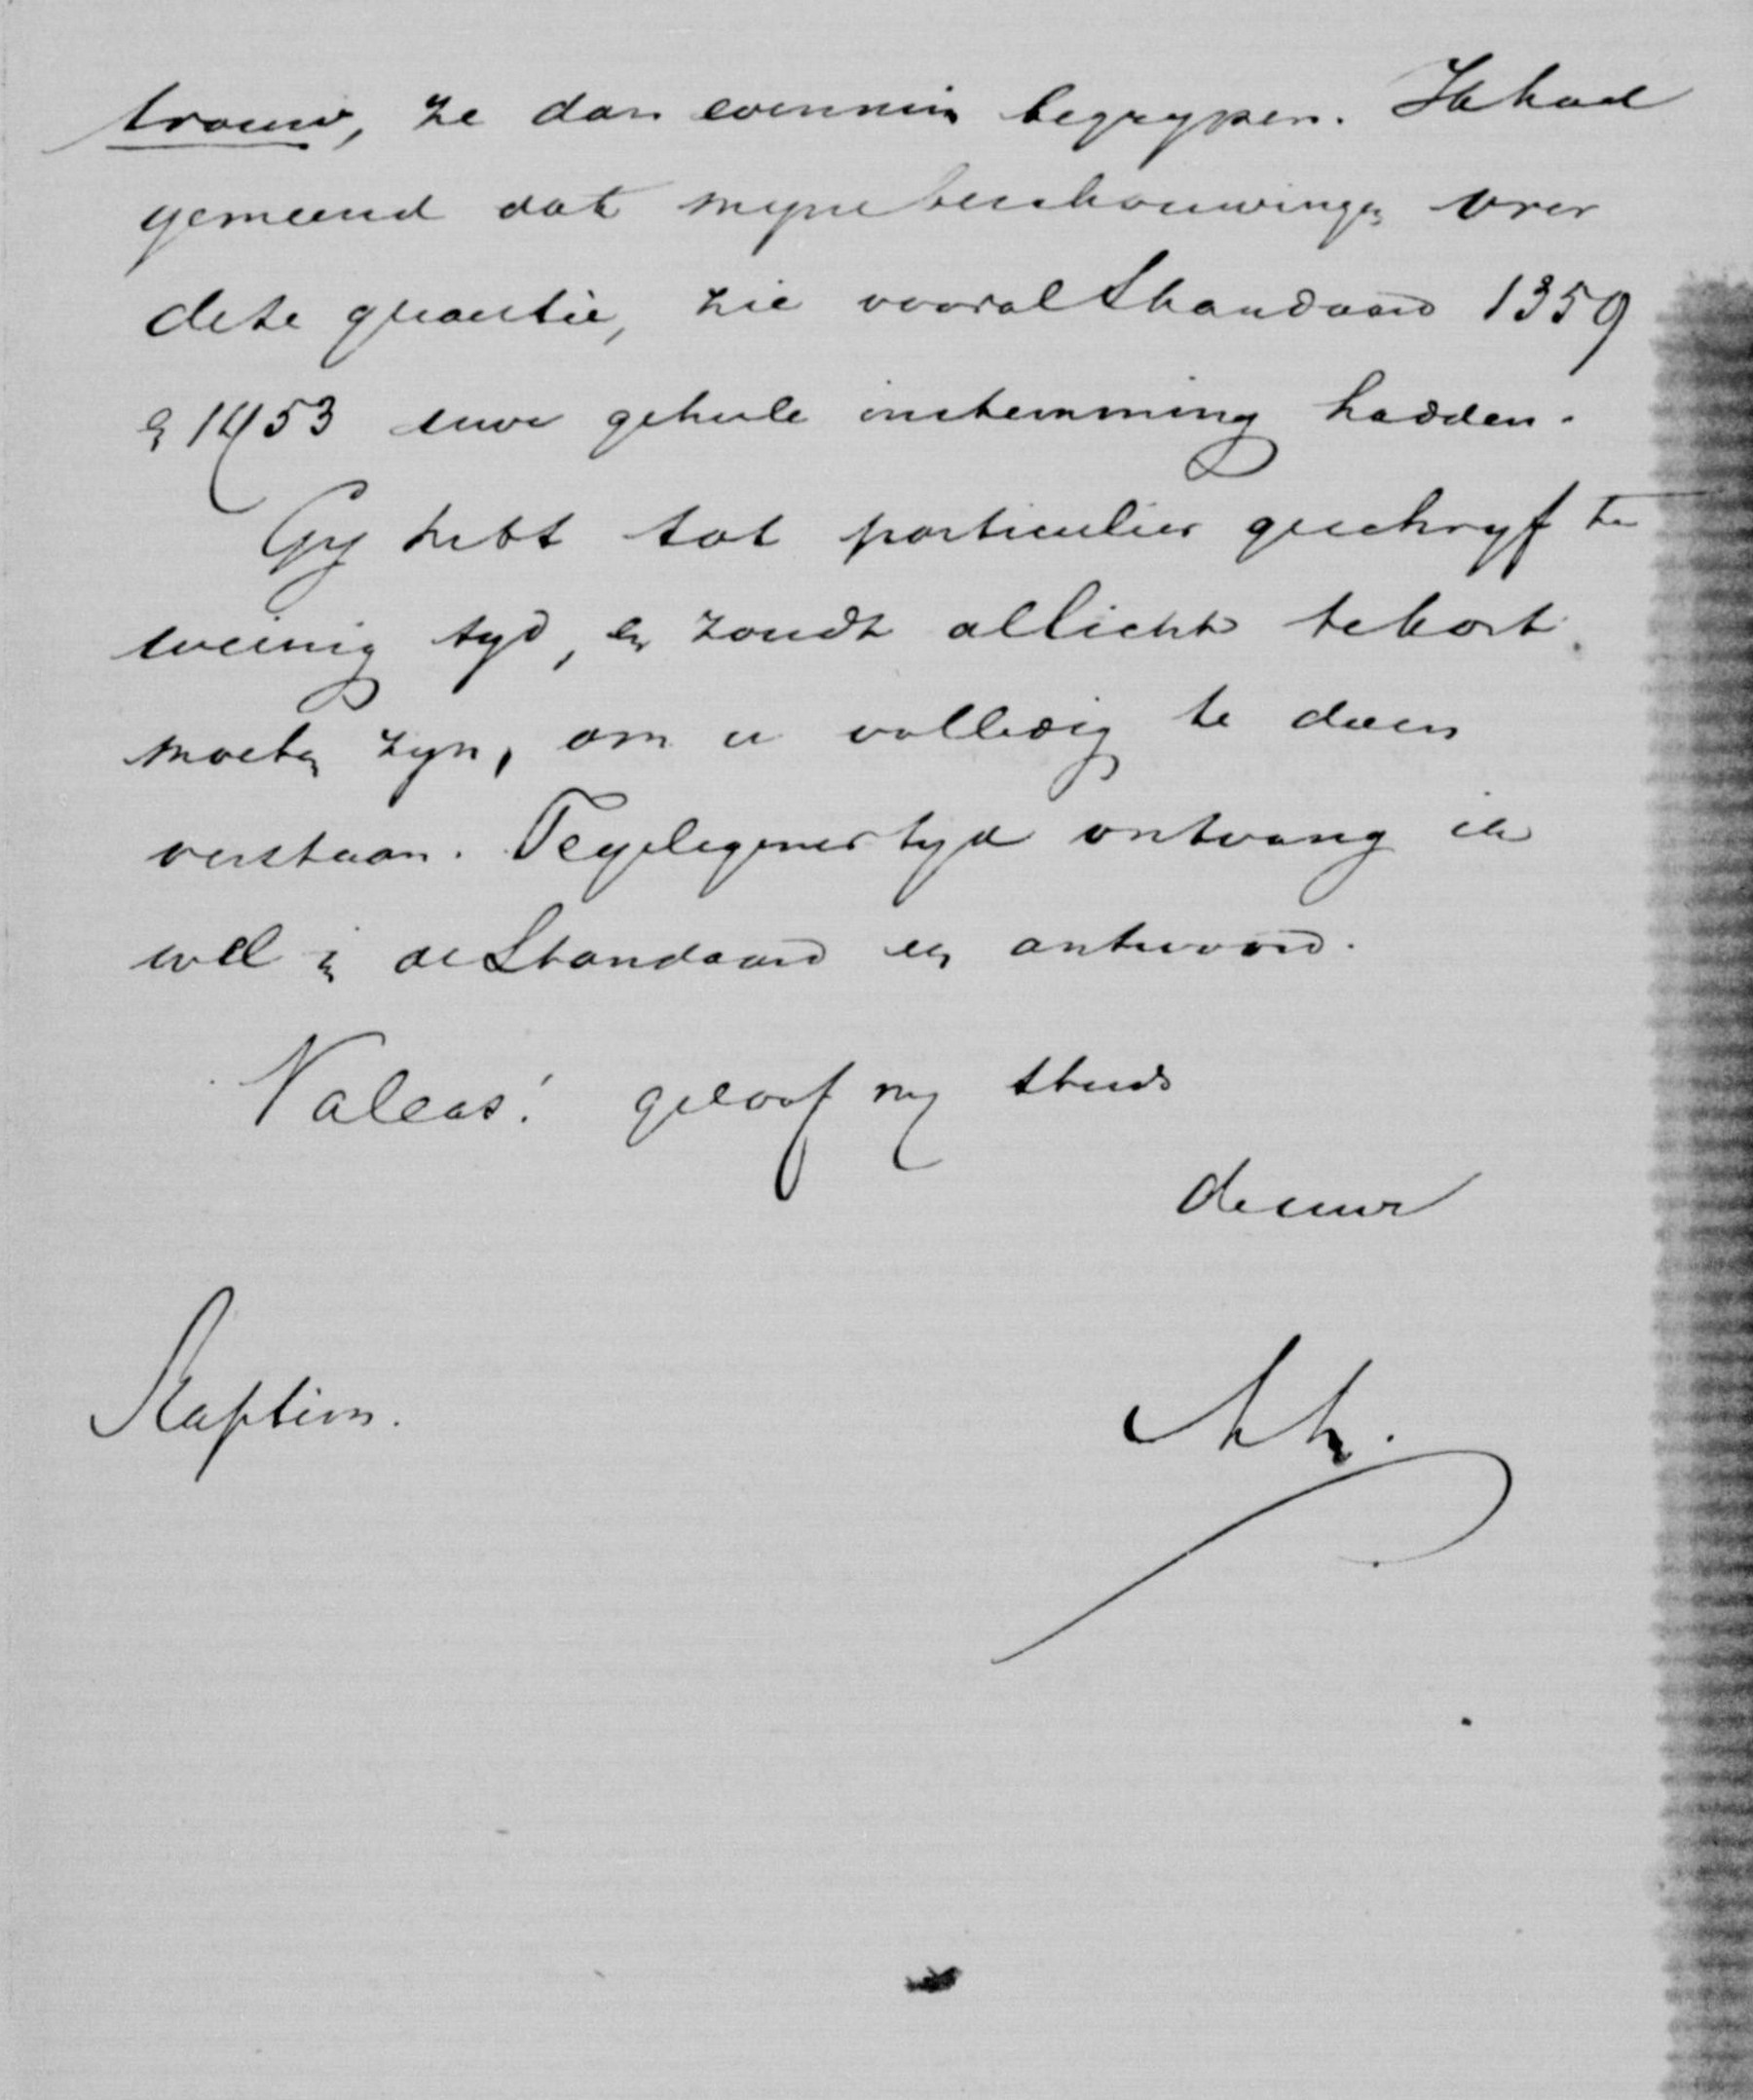 trouw, ze dan evenmin begrypen. Ik had
gemeend dat myne beschouwingen over
deze quaestie, zie vooral Standaard 1359
& 1453 uwe geheele instemming hadden.
Gy hebt tot particulier geschryf te
weinig tyd, en zoudt allicht te kort
moeten zyn, om u volledig te doen
verstaan. Te gelegener tyd ontvang ik
wel in de Standaard een antwoord.
Valeas! geloof my steeds
de uwe
Raptim.